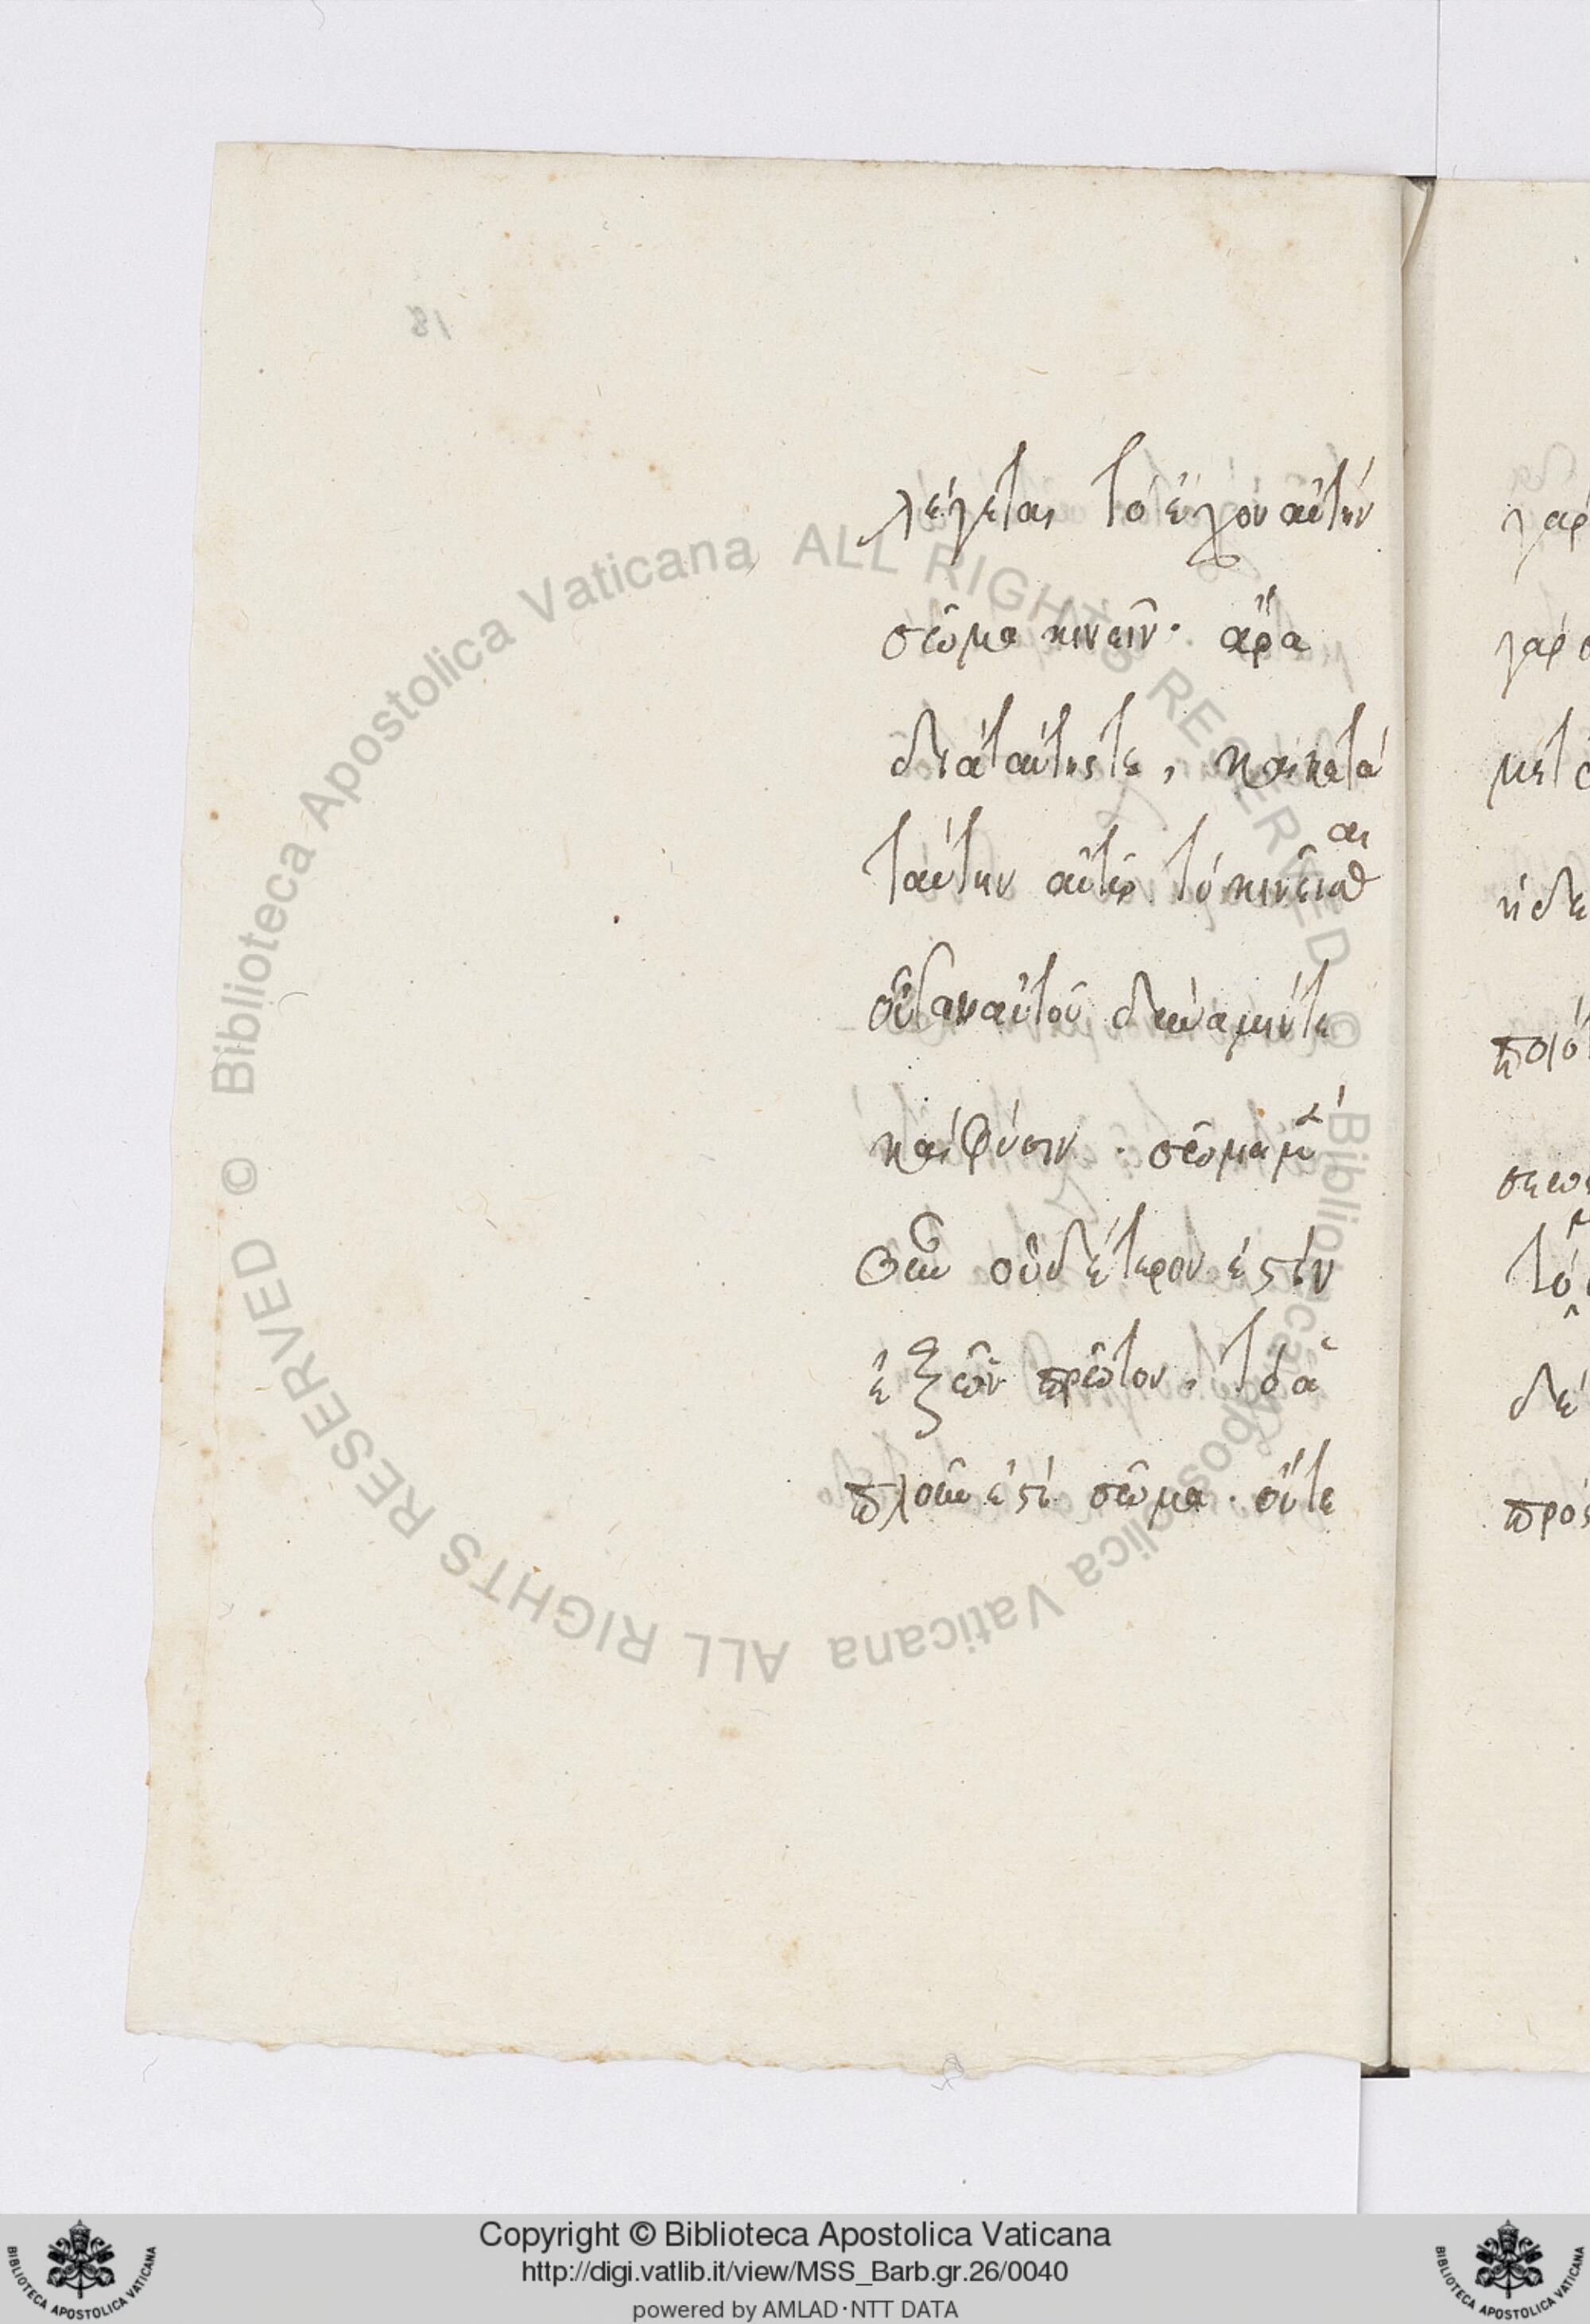 18
λέγεται τὸ ἔχον αὐτὴν
σῶμα κινεῖν· ἄρα
διὰ ταύτης τε, καὶ κατὰ
ταύτην αὐτῷ τὸ κινεῖσθαι
αὐτοῦ δύναμίν τε
καὶ φύσιν· σῶμα μὲν
οὖν οὐδέτερόν ἐστιν
ἐξ ὧν πρῶτον, τὸ ἁ
πλοῦν ἐστι σῶμα· οὔτε
γὰρ
γὰρ
μετ
ἡ δὲ
ποιότ
σεως
τὸ
δὲ
πρὸς
Biblioteca Apostolica Vaticana ALL RIGHTS RESERVED ©
Biblioteca Apostolica Vaticana ALL RIGHTS RESERVED ©
Copyright © Biblioteca Apostolica Vaticana
http://digi.vatlib.it/view/MSS_Barb.gr.26/0040
powered by AMLAD·NTT DATA
BIBLIOTECA APOSTOLICA VATICANA
BIBLIOTECA APOSTOLICA VATICANA